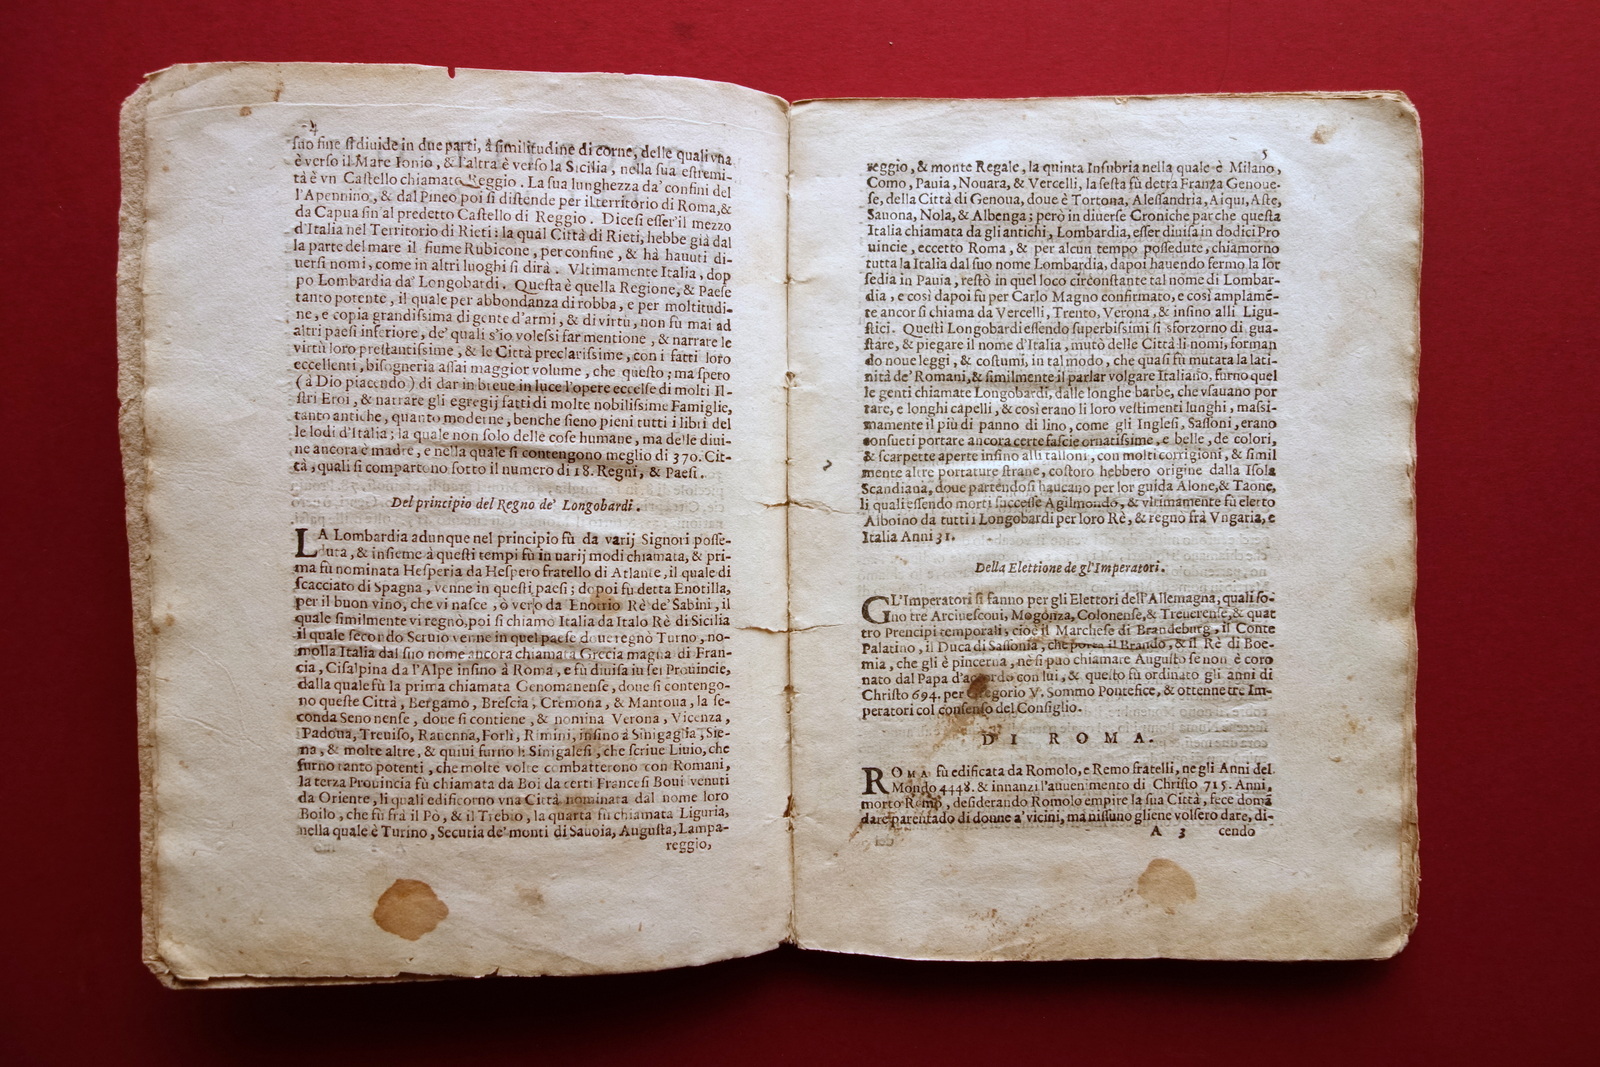 4
suo fine si diuide in due parti, à similitudine di corne, delle quali vna
è verso il Mare Ionio, & l'altra è verso la Sicilia, nella sua estremi-
tà è vn Castello chiamato Reggio. La sua lunghezza da' confini del
l'Apennino, & dal Pineo poi si distende per il territorio di Roma, &
da Capua sin'al predetto Castello di Reggio. Dicesi esser'il mezzo
d'Italia nel Territorio di Rieti: la qual Città di Rieti, hebbe già dal
la parte del mare il fiume Rubicone, per confine, & hà hauuti di-
uersi nomi, come in altri luoghi si dirà. Vltimamente Italia, dop
po Lombardia da' Longobardi. Questa è quella Regione, & Paese
tanto potente, il quale per abbondanza di robba, e per moltitudi-
ne, e copia grandissima di gente d'armi, & di virtù, non fu mai ad
altri paesi inferiore, de' quali s'io volessi far mentione, & narrare le
virtù loro prestantissime, & le Città preclarissime, con i fatti loro
eccellenti, bisogneria assai maggior volume, che questo; ma spero
(à Dio piacendo) di dar in breue in luce l'opere eccelse di molti Il-
stri Eroi, & narrare gli egregij fatti di molte nobilissime Famiglie,
tanto antiche, quanto moderne, benche sieno pieni tutti i libri del
le lodi d'Italia; la quale non solo delle cose humane, ma delle diui-
ne ancora è madre, e nella quale si contengono meglio di 370. Cit-
tà, quali si compartono sotto il numero di 18. Regni, & Paesi.
Del principio del Regno de' Longobardi.
LA Lombardia adunque nel principio fù da varij Signori posse-
duta, & insieme à questi tempi fù in uarij modi chiamata, & pri-
ma fù nominata Hesperia da Hespero fratello di Atlante, il quale di
scacciato di Spagna, venne in questi paesi; dopoi fu detta Enotilla,
per il buon vino, che vi nasce, ò vero da Enotrio Rè de' Sabini, il
quale similmente vi regnò, poi si chiamò Italia da Italo Rè di Sicilia
il quale secondo Seruio venne in quel paese doue regnò Turno, no-
molla Italia dal suo nome ancora chiamata Grecia magna di Fran-
cia, Cisalpina da l'Alpe insino à Roma, e fù diuisa iu sei Prouincie,
dalla quale fù la prima chiamata Genomanense, doue si contengo-
no queste Città, Bergamo, Brescia, Cremona, & Mantoua, la se-
conda Senonense, doue si contiene, & nomina Verona, Vicenza,
Padoua, Treuiso, Rauenna, Forlì, Rimini, insino à Sinigaglia, Sie-
na, & molte altre, & quiui furno li Sinigalesi, che scriue Liuio, che
furno tanto potenti, che molte volte combatterono con Romani,
la terza Prouincia fù chiamata da Boi da certi Francesi Boui venuti
da Oriente, li quali edificorno vna Città nominata dal nome loro
Boilo, che fù frà il Pò, & il Trebio, la quarta fù chiamata Liguria,
nella quale è Turino, Secutia de' monti di Sauoia, Augusta, Lampa-
reggio,
5
reggio, & monte Regale, la quinta Insubria nella quale è Milano,
Como, Pauia, Nouara, & Vercelli, la sesta fù detta Franza Genoue-
se, della Città di Genoua, doue è Tortona, Alessandria, Aiqui, Aste,
Sauona, Nola, & Albenga; però in diuerse Croniche par che questa
Italia chiamata da gli antichi, Lombardia, esser diuisa in dodici Pro
uincie, eccetto Roma, & per alcun tempo possedute, chiamorno
tutta la Italia dal suo nome Lombardia, dapoi hauendo fermo la lor
sedia in Pauia, restò in quel loco circonstante tal nome di Lombar-
dia, e così dapoi fu per Carlo Magno confirmato, e così amplamē-
te ancor si chiama da Vercelli, Trento, Verona, & insino alli Ligu-
stici. Questi Longobardi essendo superbissimi si sforzorno di gua-
stare, & piegare il nome d'Italia, mutò delle Città li nomi, forman
do noue leggi, & costumi, in tal modo, che quasi fù mutata la lati-
nità de' Romani, & similmente il parlar volgare Italiano, furno quel
le genti chiamate Longobardi, dalle longhe barbe, che vsauano por
tare, e longhi capelli, & così erano li loro vestimenti lunghi, massi-
mamente il più di panno di lino, come gli Inglesi, Sassoni, erano
consueti portare ancora certe fascie ornatissime, e belle, de colori,
& scarpette aperte insino alli talloni, con molti corrigioni, & simil
mente altre portature strane, costoro hebbero origine dalla Isola
Scandiana, doue partendosi haucano per lor guida Alone, & Taone,
li quali essendo morti successe Agilmondo, & vltimamente fù eletto
Alboino da tutti i Longobardi per loro Rè, & regnò frà Vngaria, e
Italia Anni 31.
Della Elettione de gl'Imperatori.
GL'Imperatori si fanno per gli Elettori dell'Allemagna, quali so-
no tre Arciuesconi, Mogonza, Colonense, & Treuerense, & quat
tro Prencipi temporali, cioè il Marchese di Brandeburg, il Conte
Palatino, il Duca di Sassonia, che porta il Brando, & il Rè di Boe-
mia, che gli è pincerna, nè si può chiamare Augusto se non è coro
nato dal Papa d'accordo con lui, & questo fù ordinato gli anni di
Christo 694. per Gregorio V. Sommo Pontefice, & ottenne tre Im-
peratori col consenso del Consiglio.
DI ROMA.
ROMA fù edificata da Romolo, e Remo fratelli, ne gli Anni del
Mondo 4448. & innanzi l'auuenimento di Christo 715. Anni,
morto Remo, desiderando Romolo empire la sua Città, fece domā
dare parentado di donne a' vicini, ma nissuno gliene volsero dare, di-
A 3 cendo